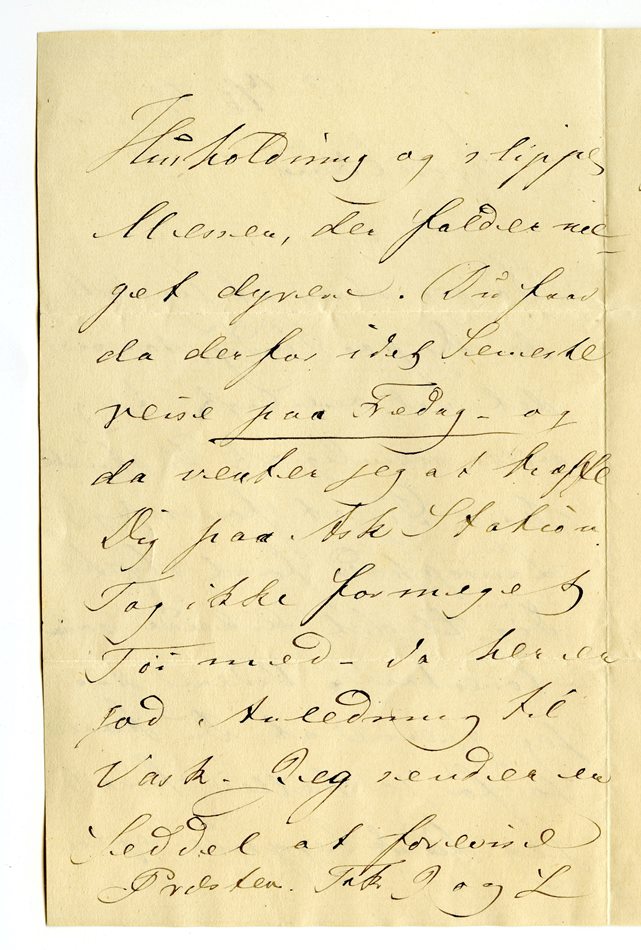 Husholdning og slippe
Messen, der falder no-
get dyrere. Du faar
da derfor idet Seneste
reise paa Fredag - og
da venter jeg at træffe
Dig paa Ask Station.
Tag ikke formeget
Töi med - da her er
god Anledning til
Vask. Jeg sender en
Seddel at forevise
Præsten. Tak og